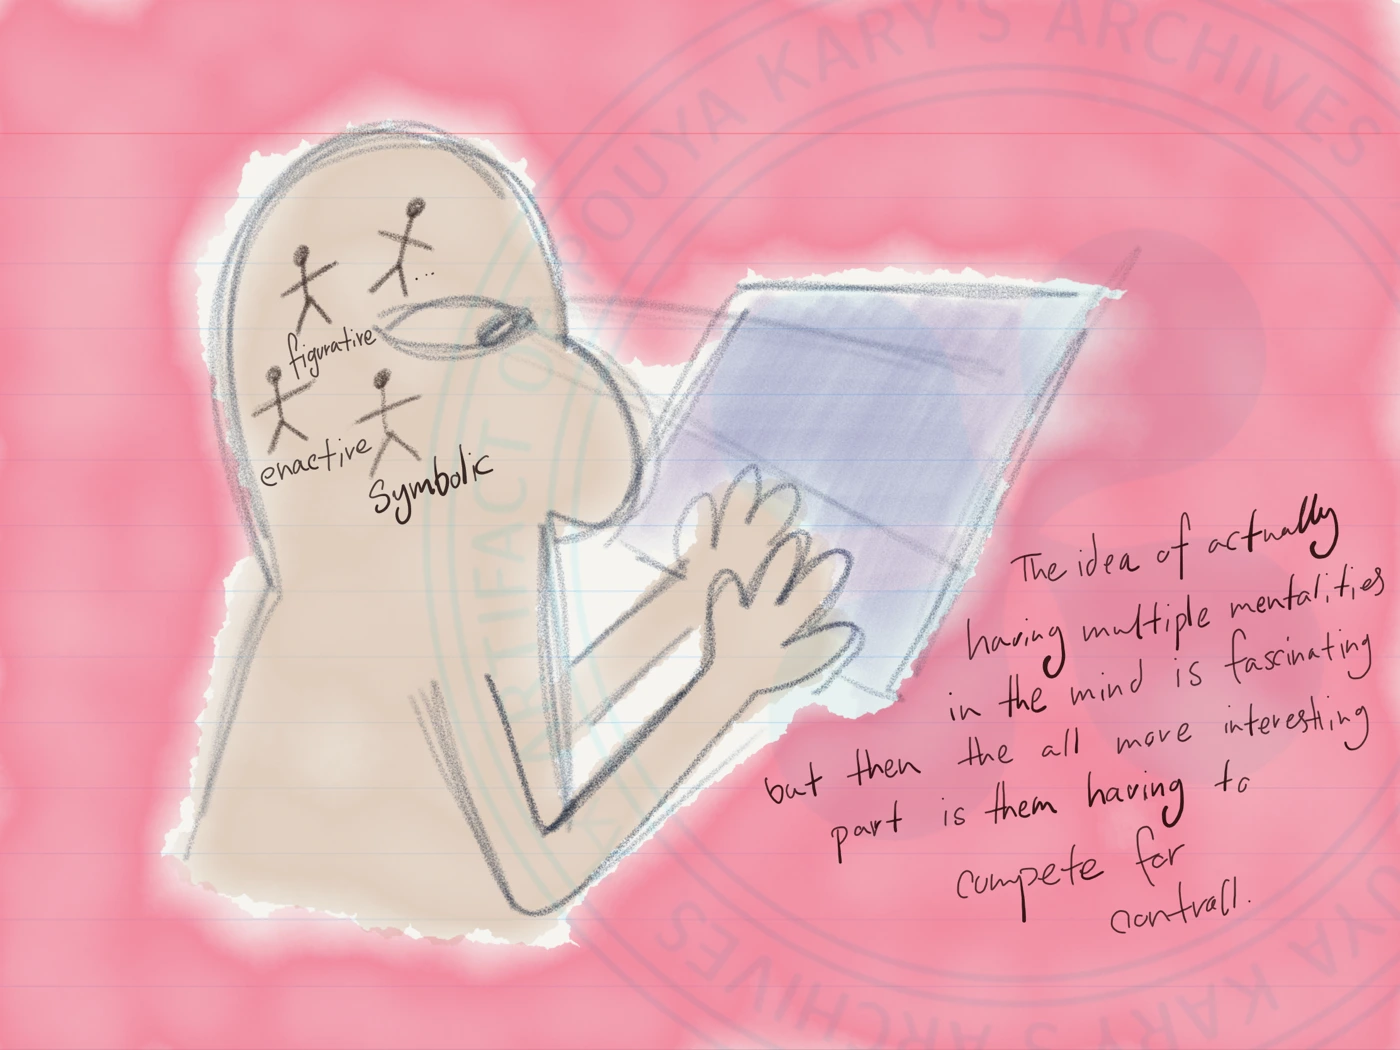 ARTIFACT OF POUYA KARY'S ARCHIVES
figurative
...
enactive
Symbolic
The idea of actually
having multiple mentalities
in the mind is fascinating
but then the all more interesting
part is them having to
compete for
controll.
KARY'S ARCHIVES